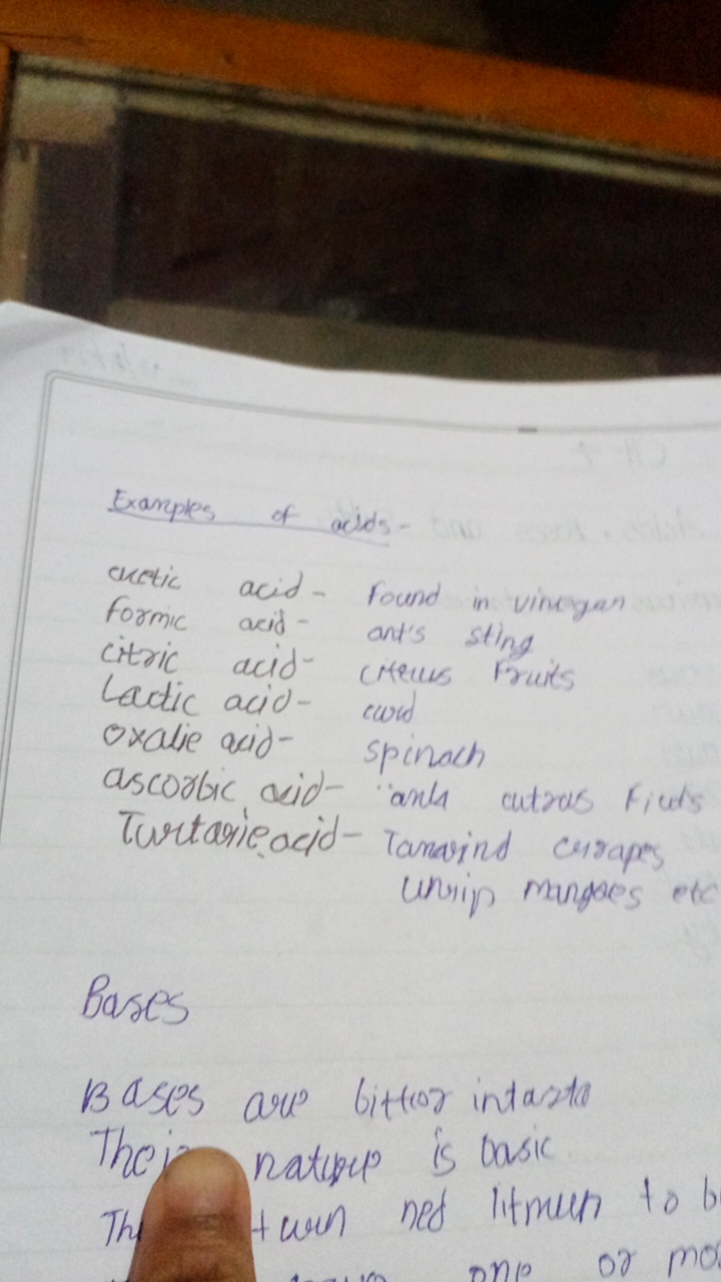 Examples of acids-
acetic acid- Found in vinegar
formic acid- ant's sting
citric acid- citrus Fruits
Lactic acid- curd
oxalic acid- spinach
ascorbic acid- amla citrus
Tartaric acid- Tamarind Grapes
unrip mangoes etc
Bases
Bases are bitter in taste
nature is basic
turn red to
one or